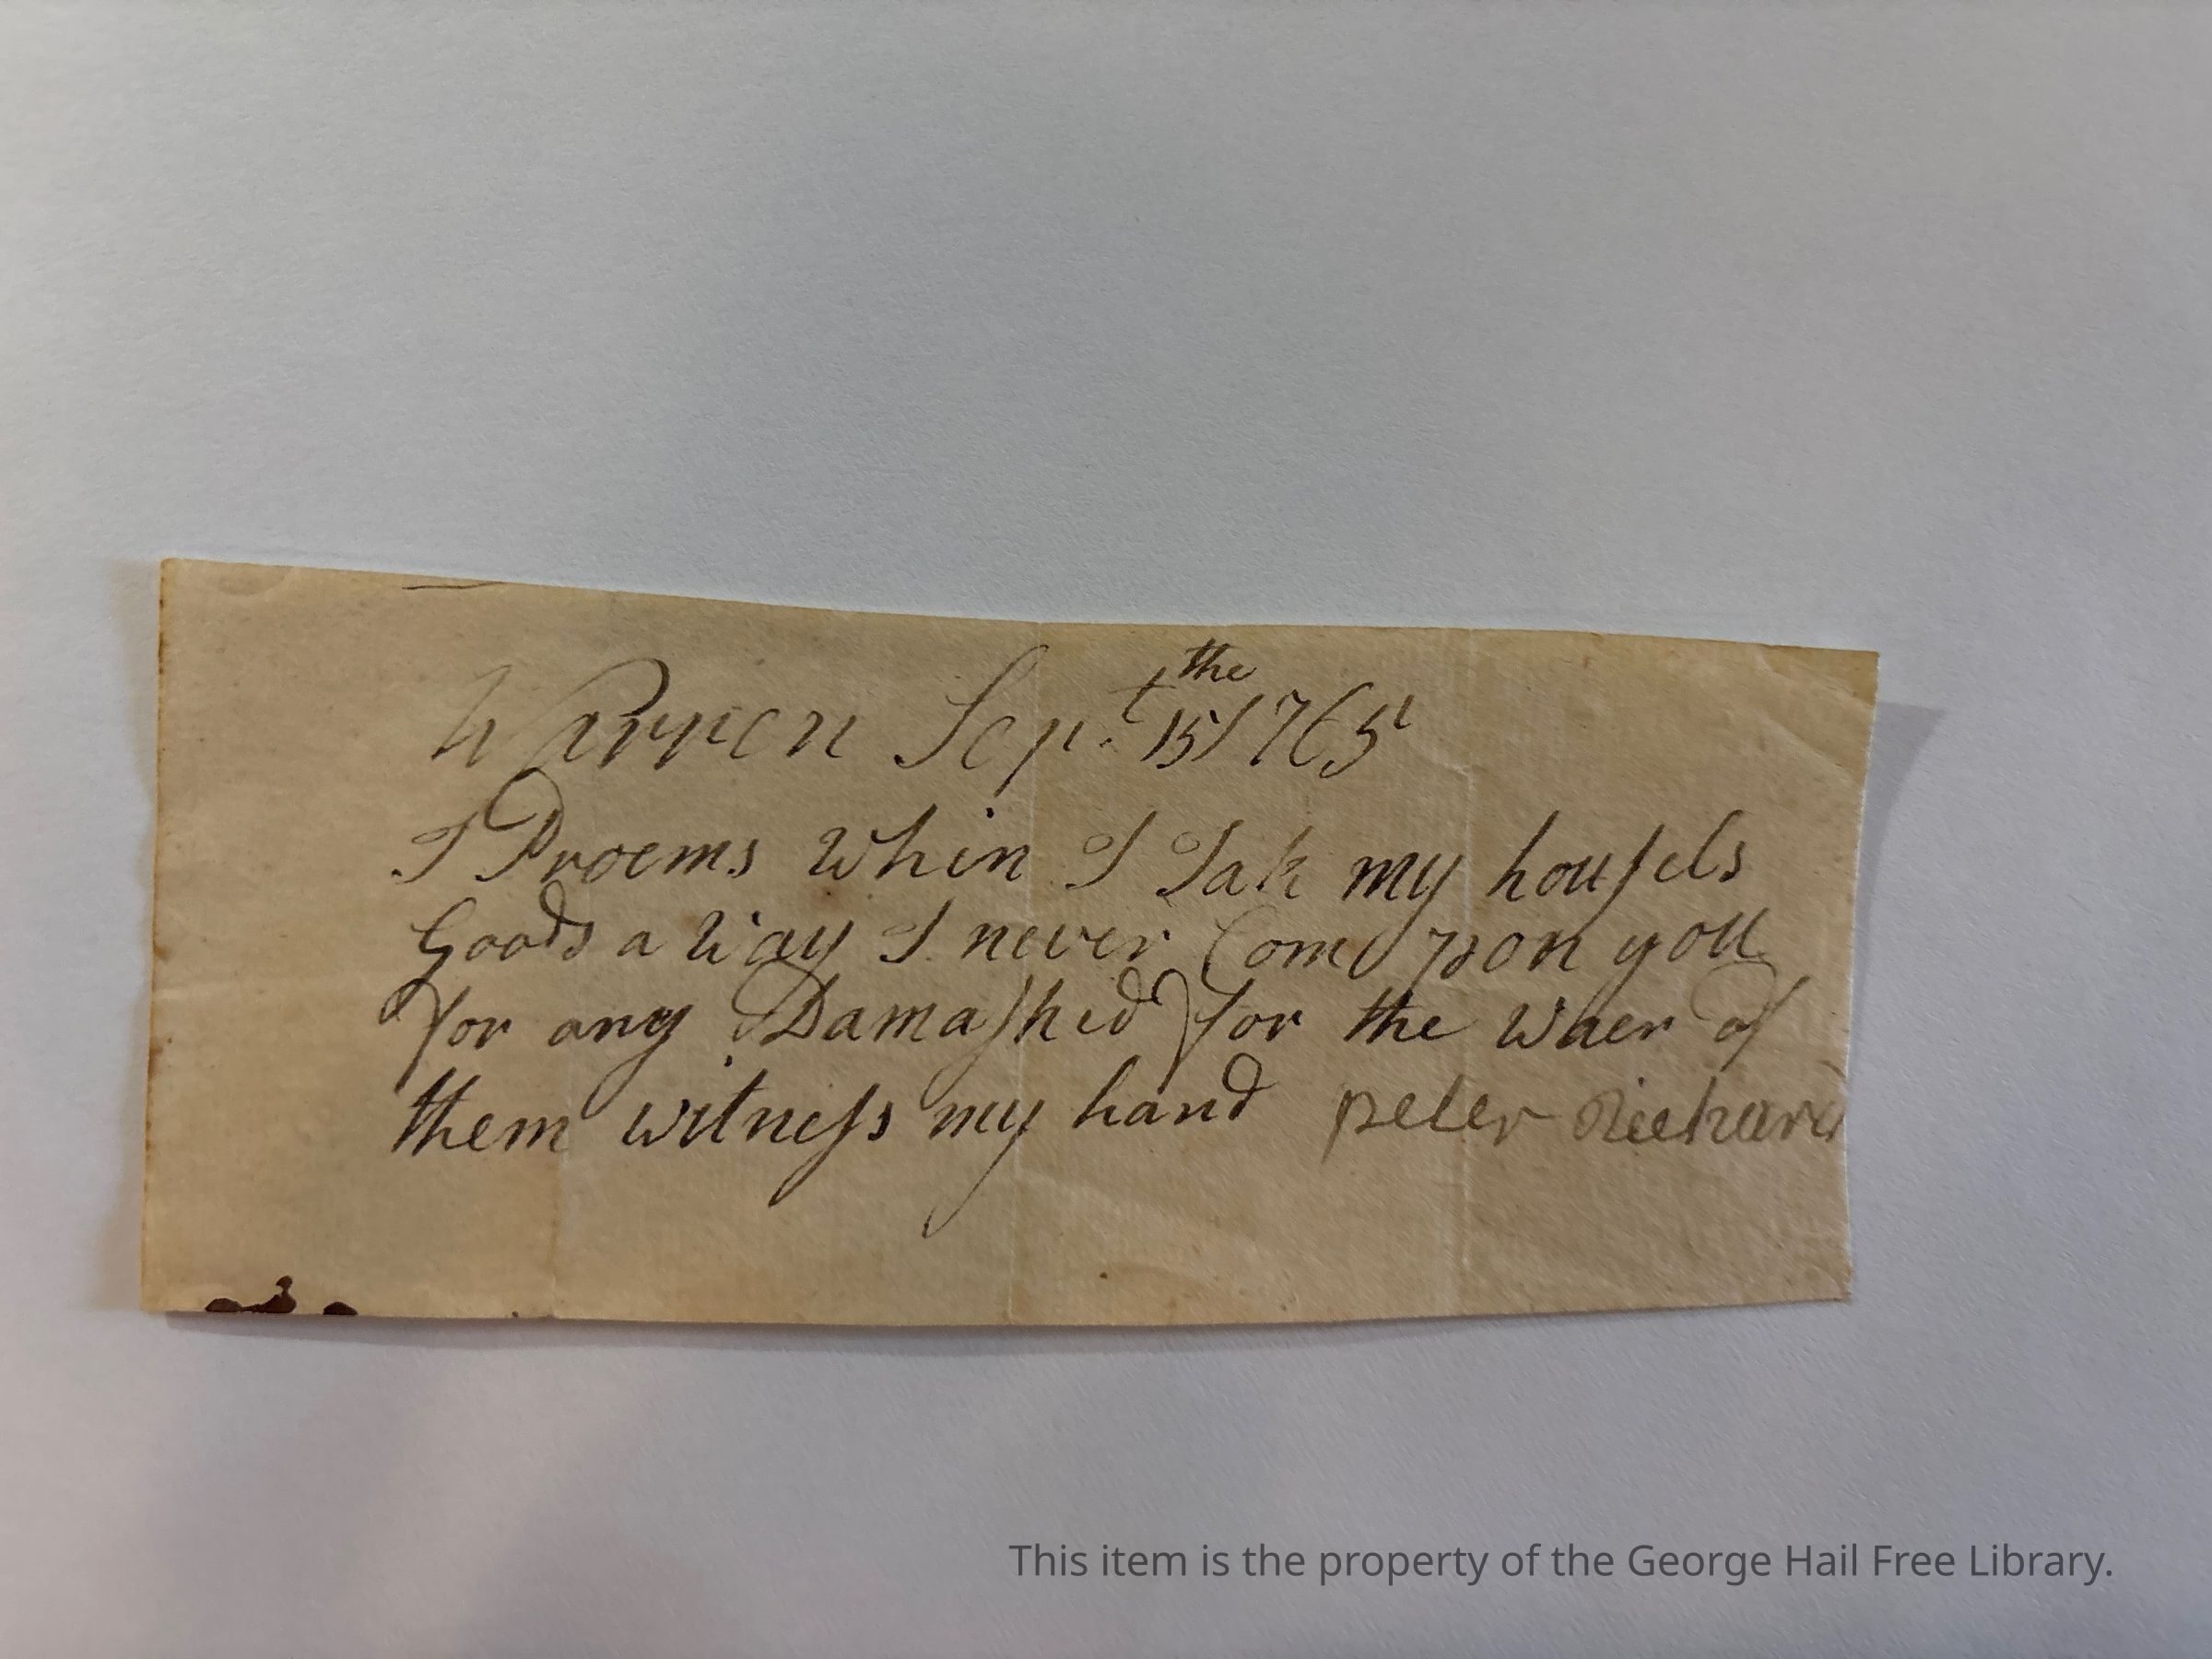 Warren Sept. 15the 1765
I Proems Whin I Tak my housels
Goods a Way I never Com pon you
for any Damashed for the Waer of
them witness my hand peter Rickard
This item is the property of the George Hail Free Library.